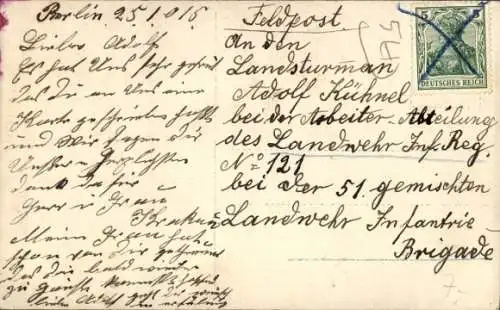 Berlin, 25.1.015
Lieber Adolf
Es hat Uns sehr gefreut
das du an Uns eine
Karte geschrieben hast
und Wir sagen dir
Unsern Herzlichsten
dank dafür
Herr u Frau
Meine Frau hat
schon von dir geträumt
das du bald wieder
zu Hause
lieber Adolf geht
Feldpost.
54
An den
Landsturman
Adolf Kühnel
bei der Arbeiter-Abteilung
des Landwehr Inf. Reg.
No 121
bei der 51. gemischten
Landwehr Infantrie
Brigade
5 5
DEUTSCHES REICH
7.-